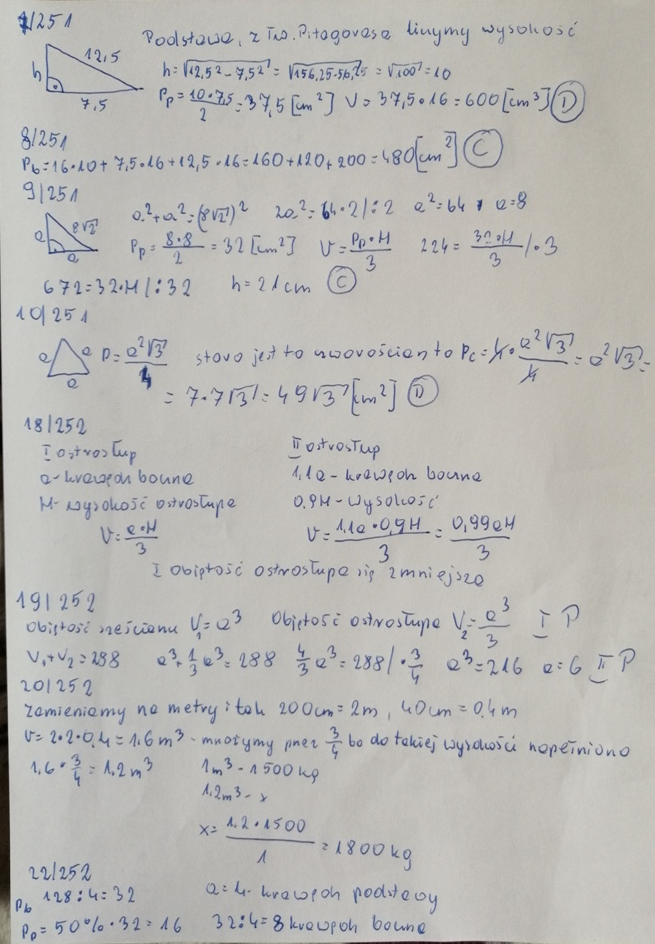 7/251
Podstawa, z Tw. Pitagorasa liczymy wysokość
h 12,5 7,5
h=√12,5²-7,5² = √156,25-56,25 = √100 = 10
Pp = 10•7,5/2 = 37,5 [cm²] V= 37,5•16=600 [cm³] D
8/251
Pb=16•10+7,5•16+12,5•16=160+120+200=480[cm²] C
9/251
a 8√2 a
a²+a²=(8√2)² 2a²=64•2/:2 a²=64 a=8
Pp=8•8/2=32[cm²] V=Pp•H/3 224=32•H/3 /•3
672=32•H/:32 h=21cm C
10/251
a a a P=a²√3/4 skoro jest to czworościan to Pc=4•a²√3/4=a²√3=
=7•7√3=49√3[cm²] D
18/252
I ostrosłup II ostrosłup
a-krawędź boczna 1,1a-krawędź boczna
H-wysokość ostrosłupa 0,9H-wysokość
V=a•H/3 V=1,1a•0,9H/3=0,99aH/3
I Objętość ostrosłupa się zmniejsza
19/252
Objętość sześcianu V₁=a³ Objętość ostrosłupa V₂=a³/3 I P
V₁+V₂=288 a³+1/3a³=288 4/3a³=288/•3/4 a³=216 a=6 II P
20/252
Zamieniamy na metry i tak 200cm=2m, 40cm=0,4m
V=2•2•0,4=1,6m³ - mnożymy przez 3/4 bo do takiej wysokości napełniono
1,6•3/4=1,2m³ 1m³-1500kg
1,2m³-x
x=1,2•1500/1=1800kg
22/252
Pb 128:4=32 a=4-krawędź podstawy
Pp=50%•32=16 32:4=8 krawędź boczna